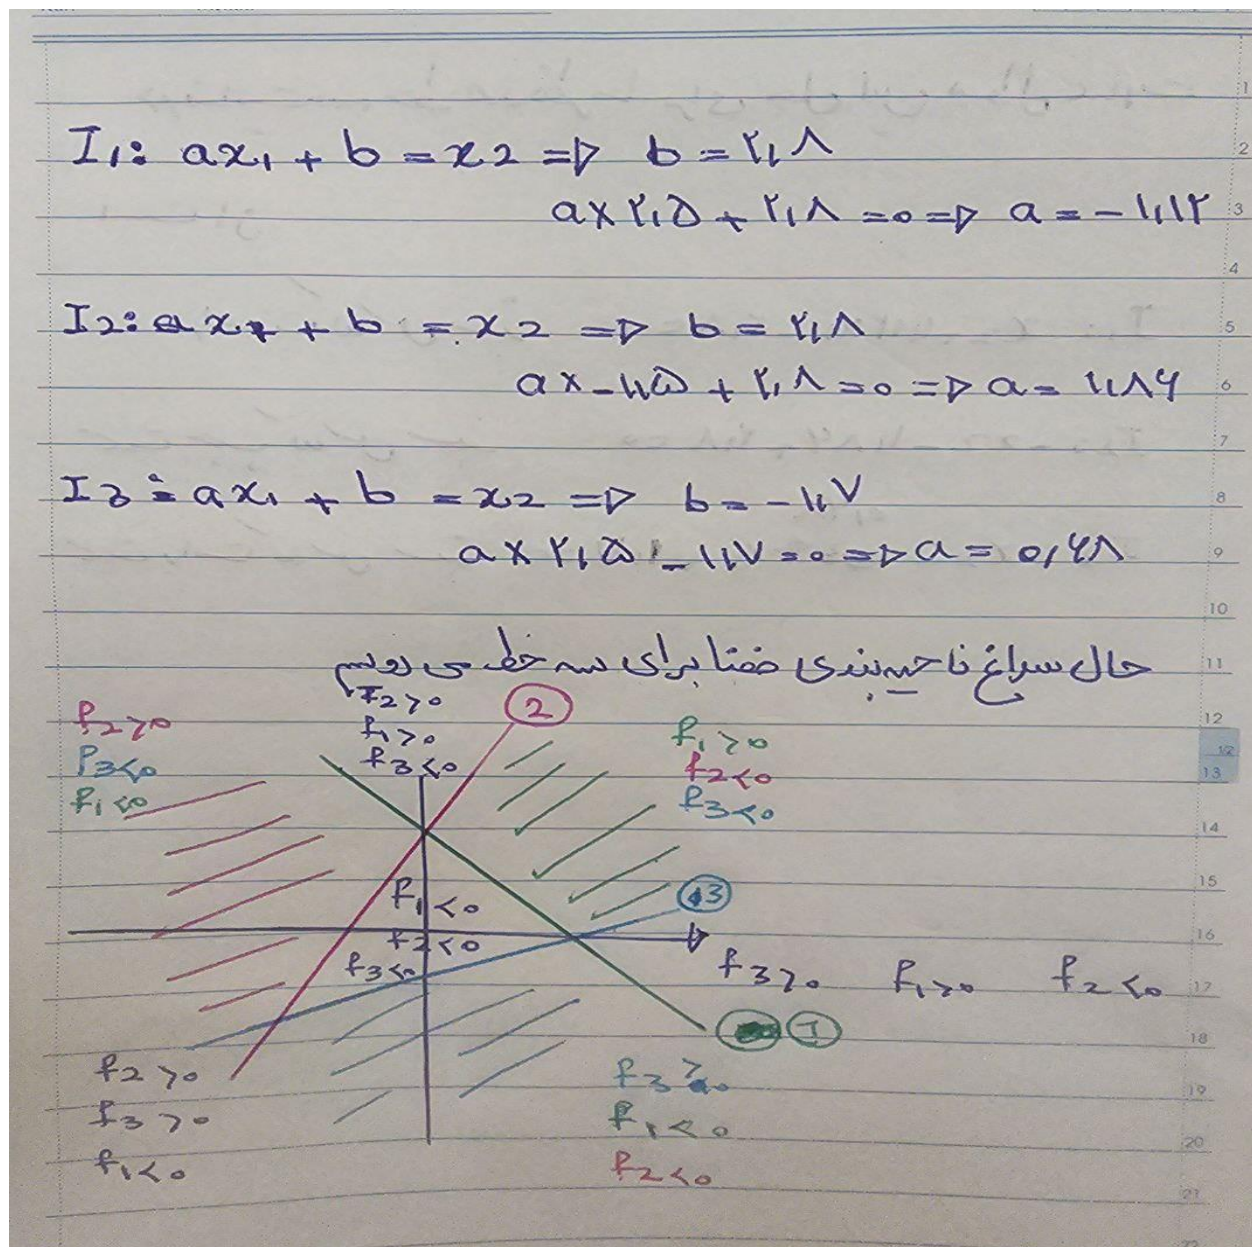 I₁: ax₁ + b = x2 => b = ۲,۸
a × ۲,۵ + ۲,۸ = ۰ => a = -۱,۱۲
I2: ax₁ + b = x2 => b = ۲,۸
a × -۱,۵ + ۲,۸ = ۰ => a = ۱,۸۶
I3: ax₁ + b = x2 => b = -۱,۷
a × ۲,۵ - ۱,۷ = ۰ => a = ۰,۶۸
حال سراغ ناحیه‌بندی فضا برای سه خط می رویم
f2>0
f3<0
f₁<0
f2>0
f₁>0
f3<0
2
f₁>0
f2<0
f3<0
f₁<0
f2<0
f3<0
3
f3>0 f₁>0 f2<0
1
f2>0
f3>0
f₁<0
f3>0
f₁<0
f2<0
1
2
3
4
5
6
7
8
9
10
11
12
13
14
15
16
17
18
19
20
21